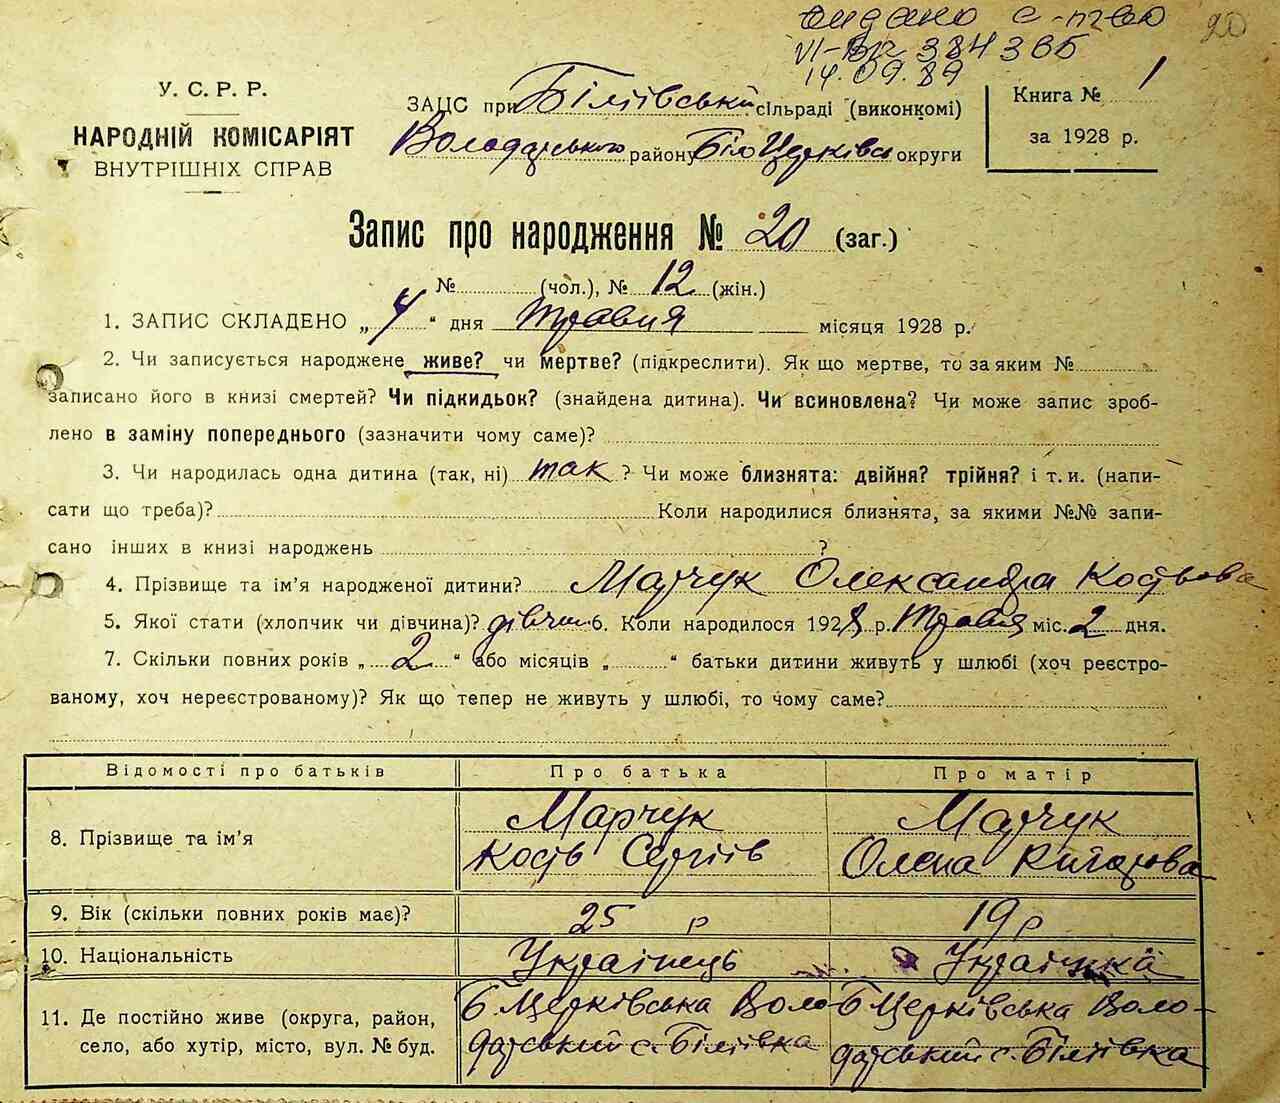 видано с-тво 20
VI-БК 384386
14.09.89
У. С. Р. Р.
НАРОДНІЙ КОМІСАРІЯТ
ВНУТРІШНІХ СПРАВ
ЗАЦС при Біліївській сільраді (виконкомі)
Володарського район. Біло Церківсь округи
Книга № 1
за 1928 р.
Запис про народження № 20 (заг.)
№ (чол.), № 12 (жін.)
1. ЗАПИС СКЛАДЕНО „ 4 “ дня травня місяця 1928 р.
2. Чи записується народжене живе? чи мертве? (підкреслити). Як що мертве, то за яким №
записано його в книзі смертей? Чи підкидьок? (знайдена дитина). Чи всиновлена? Чи може запис зроб-
лено в заміну попереднього (зазначити чому саме)?
3. Чи народилась одна дитина (так, ні) так ? Чи може близнята: двійня? трійня? і т. и. (напи-
сати що треба)? Коли народилися близнята, за якими №№ запи-
сано інших в книзі народжень ?
4. Прізвище та ім’я народженої дитини? Марчук Олександра Костьова
5. Якої стати (хлопчик чи дівчина)? дівчин 6. Коли народилося 1928 р. Травня міс. 2 дня.
7. Скільки повних років „ 2 “ або місяців „ “ батьки дитини живуть у шлюбі (хоч реєстро-
ваному, хоч нереєстрованому)? Як що тепер не живуть у шлюбі, то чому саме?
Відомості про батьків Про батька Про матір
8. Прізвище та ім’я Марчук Кость Сергіїв Марчук Олена
9. Вік (скільки повних років має)? 25 р 19 р
10. Національність Українець Українка
11. Де постійно живе (округа, район, село, або хутір, місто, вул. № буд. Б. Церківська Воло-
дарський с. Біліївка Б Церківська Воло-
дарський с. Біліївка